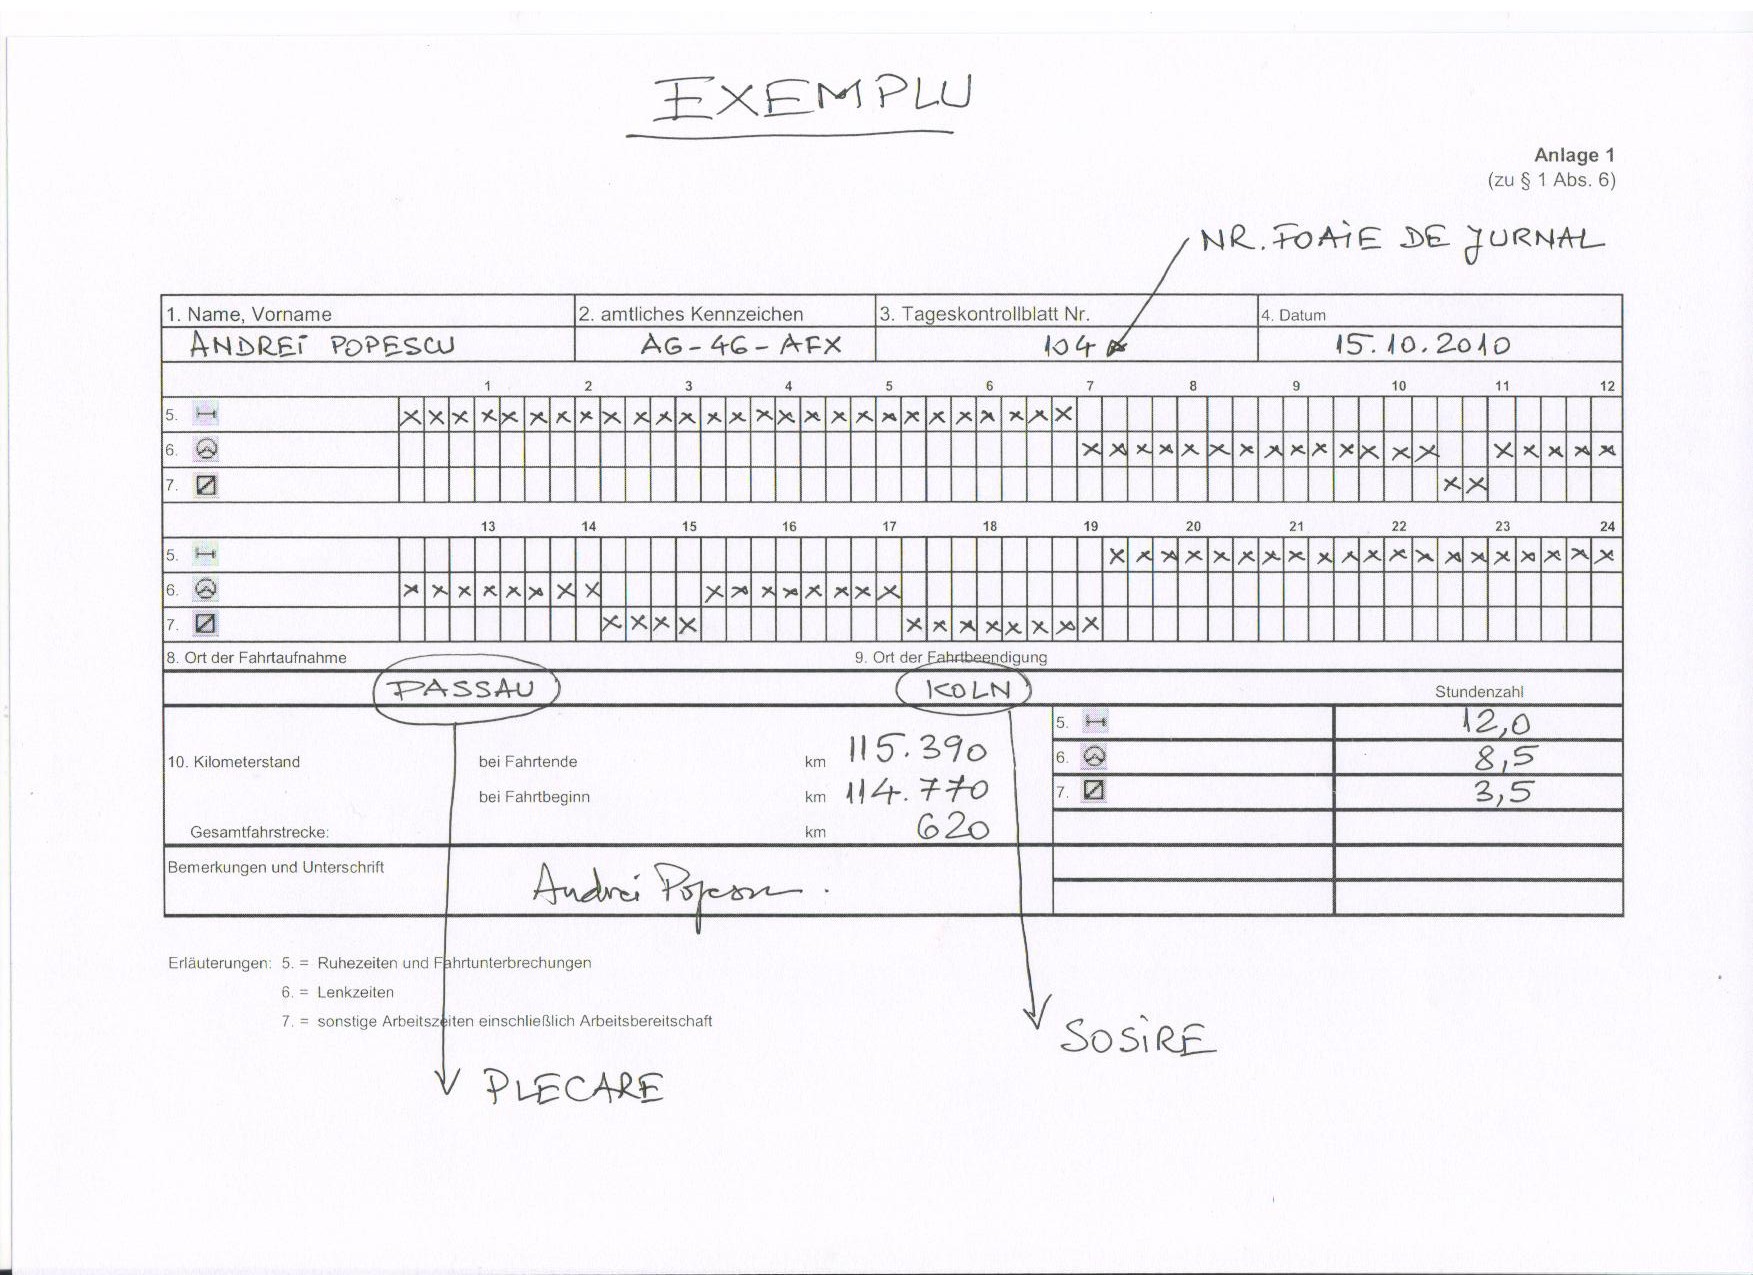 EXEMPLU
Anlage 1
(zu § 1 Abs. 6)
NR. FOAIE DE JURNAL
1. Name, Vorname 2. amtliches Kennzeichen 3. Tageskontrollblatt Nr. 4. Datum
ANDREI POPESCU AG-46-AFX 104 15.10.2010
1 2 3 4 5 6 7 8 9 10 11 12
5. x x x x x x x x x x x x x x x x x x x x x x x x x x x
6. x x x x x x x x x x x x x x x x x x x
7. x x
13 14 15 16 17 18 19 20 21 22 23 24
5. x x x x x x x x x x x x x x x x x x x x
6. x x x x x x x x x x x x x x x x
7. x x x x x x x x x x x x
8. Ort der Fahrtaufnahme 9. Ort der Fahrtbeendigung
PASSAU KOLN Stundenzahl
5. 12,0
10. Kilometerstand bei Fahrtende km 115.390 6. 8,5
bei Fahrtbeginn km 114.770 7. 3,5
Gesamtfahrstrecke: km 620
Bemerkungen und Unterschrift
Andrei Popescu
Erläuterungen: 5. = Ruhezeiten und Fahrtunterbrechungen
6. = Lenkzeiten
7. = sonstige Arbeitszeiten einschließlich Arbeitsbereitschaft
SOSIRE
PLECARE